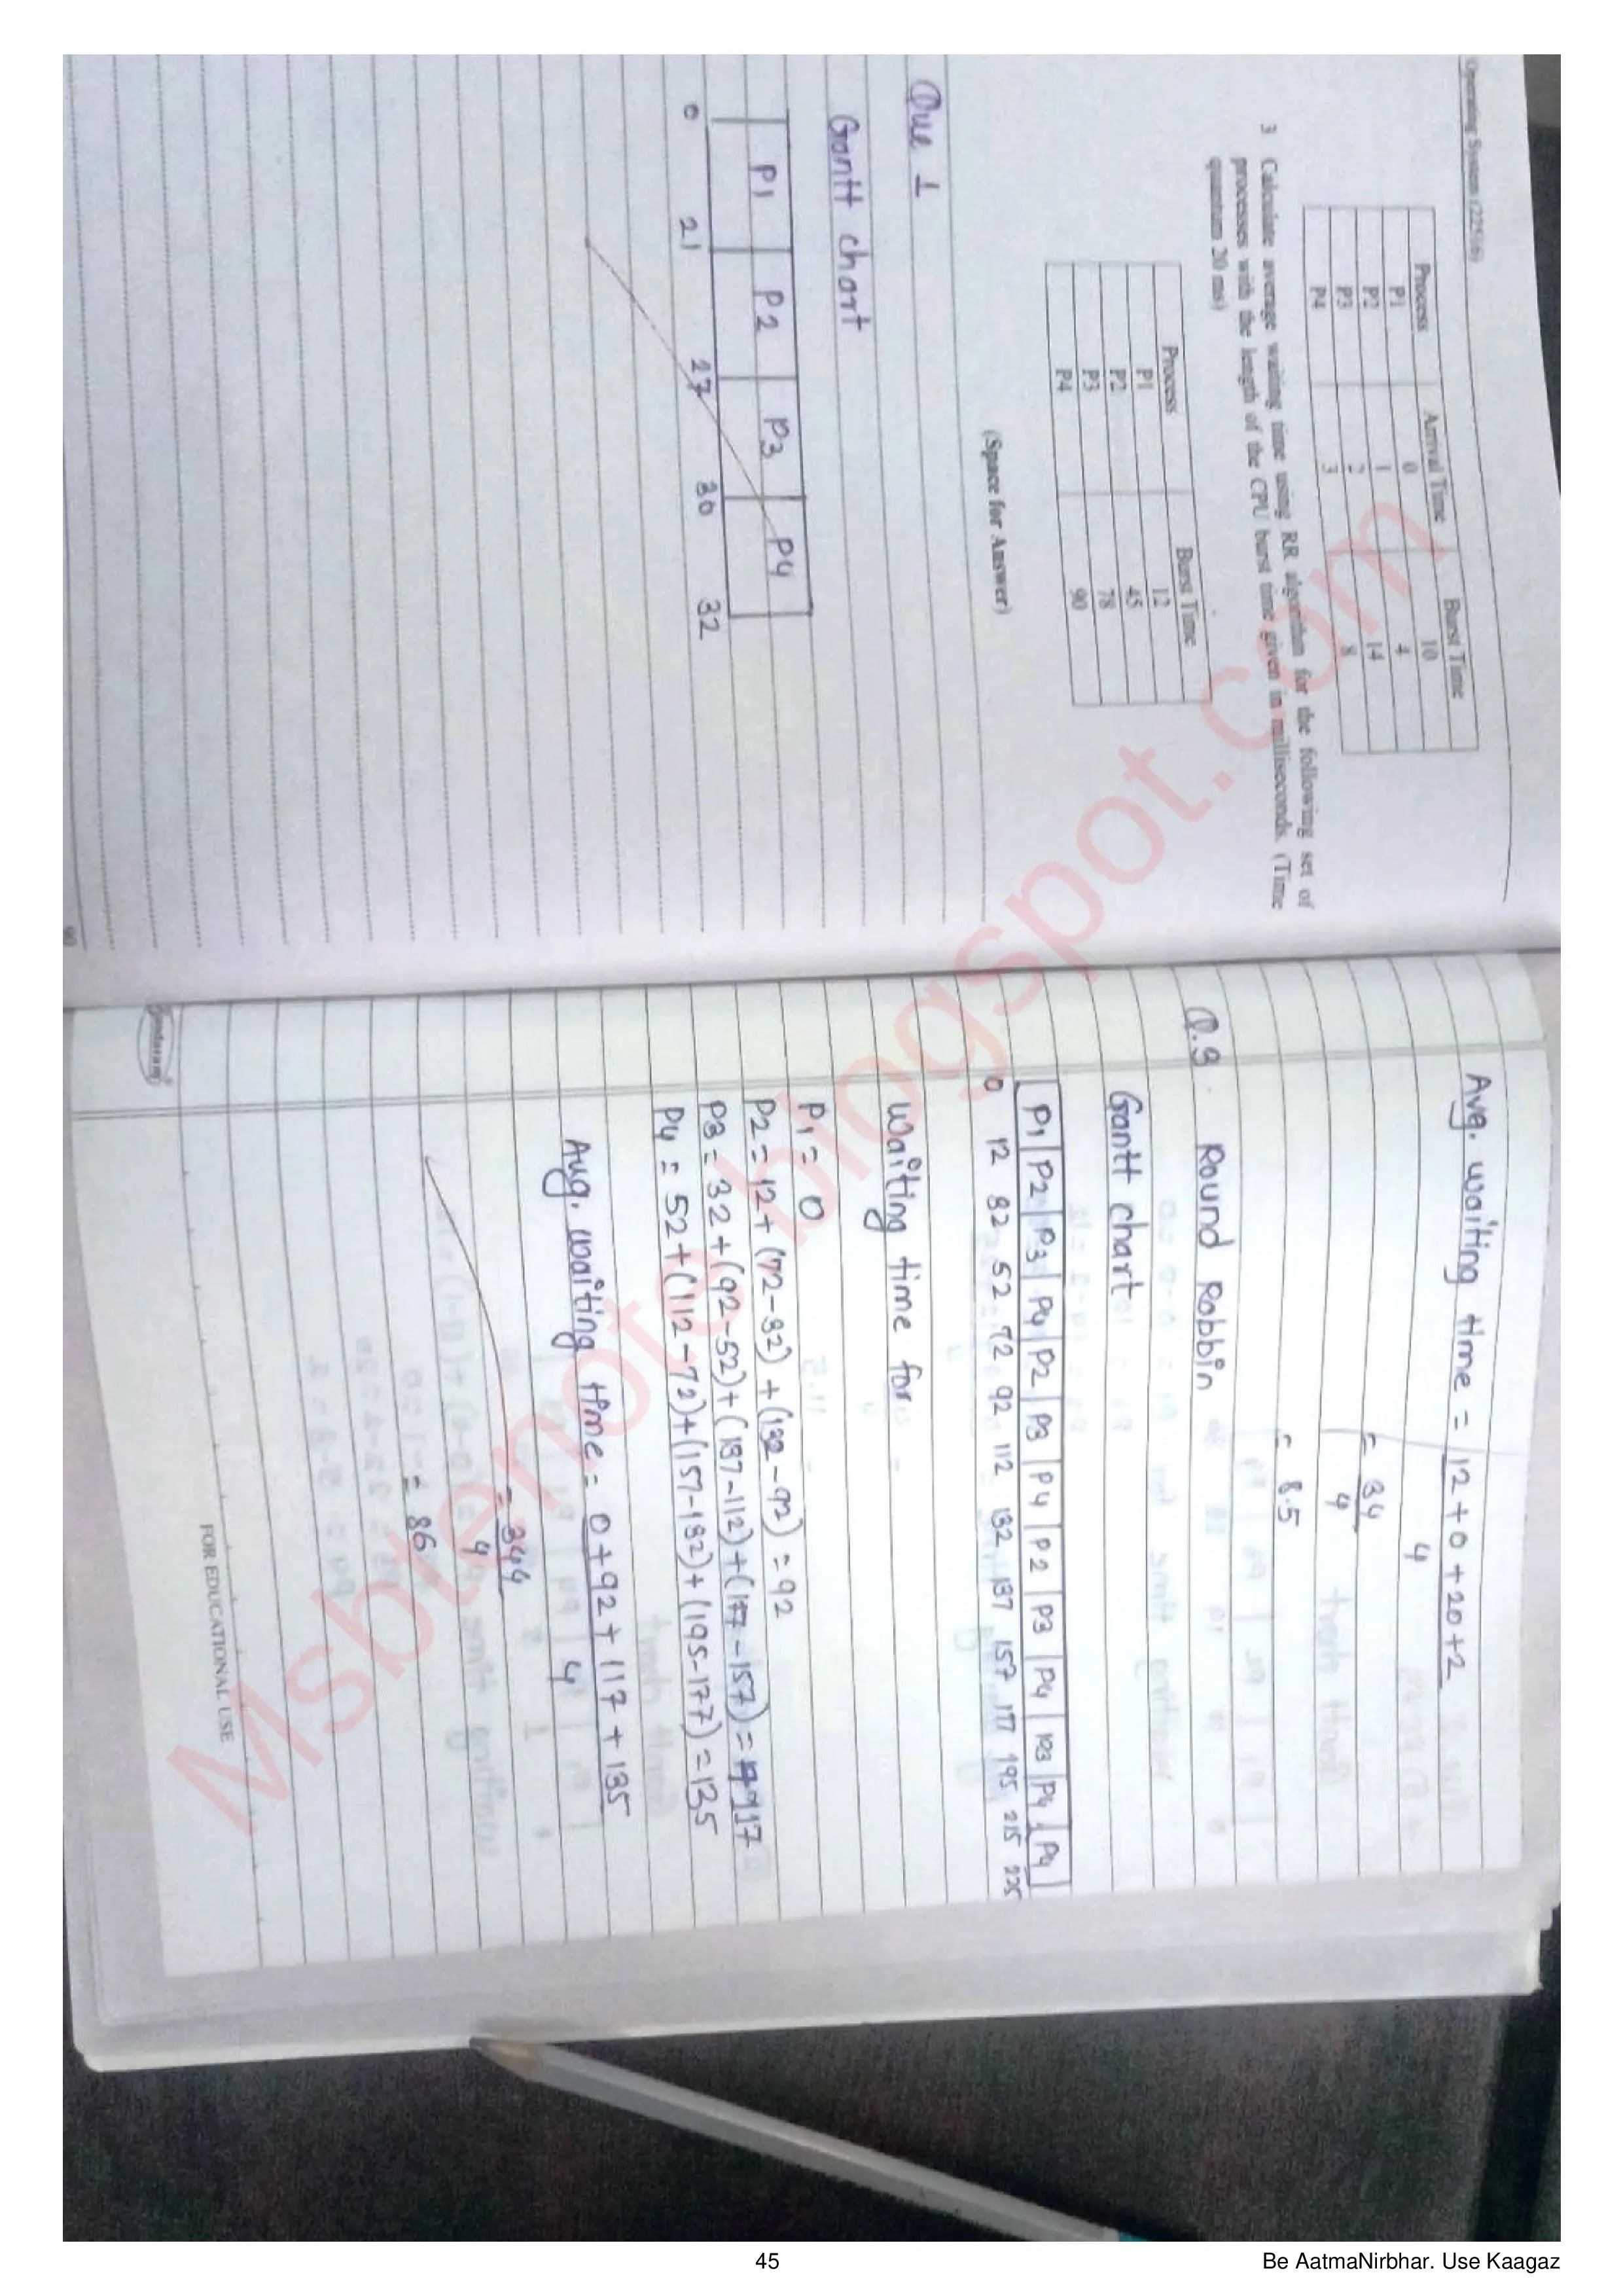 Operating System (22516)
Process Arrival Time Burst Time
P1 0 10
P2 1 4
P3 2 14
P4 3 8
3 Calculate average waiting time using RR algorithm for the following set of
processes with the length of the CPU burst time given in milliseconds. (Time
quantum 20 ms)
Process Burst Time
P1 12
P2 45
P3 78
P4 90
(Space for Answer)
Que 1
Gantt chart
P1 P2 P3 P4
0 21 27 30 32
90
Avg. waiting time = 12+0+20+2
4
= 34
4
= 8.5
Q.3 Round Robbin
Gantt chart
P1 P2 P3 P4 P2 P3 P4 P2 P3 P4 P3 P4 P4
0 12 32 52 72 92 112 132 137 157 177 195 215 225
Waiting time for
P1 = 0
P2 = 12+(72-32)+(132-92) = 92
P3 = 32+(92-52)+(137-112)+(177-157) = 117
P4 = 52+(112-72)+(157-132)+(195-177) = 135
Aug. waiting time = 0+92+117+135
4
= 344
4
= 86
Sundaram
FOR EDUCATIONAL USE
Msbtenote.blogspot.com
45
Be AatmaNirbhar. Use Kaagaz